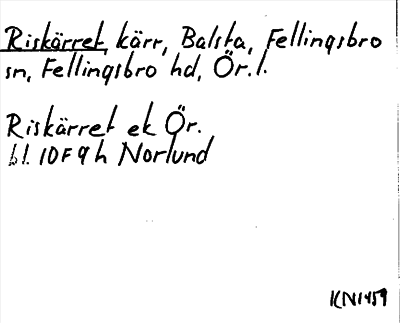 Riskärret, kärr, Balsta, Fellingsbro
sn, Fellingsbro hd, Ör. l.
Riskärret ek Ör.
bl. 10F9h Norlund
KN1459